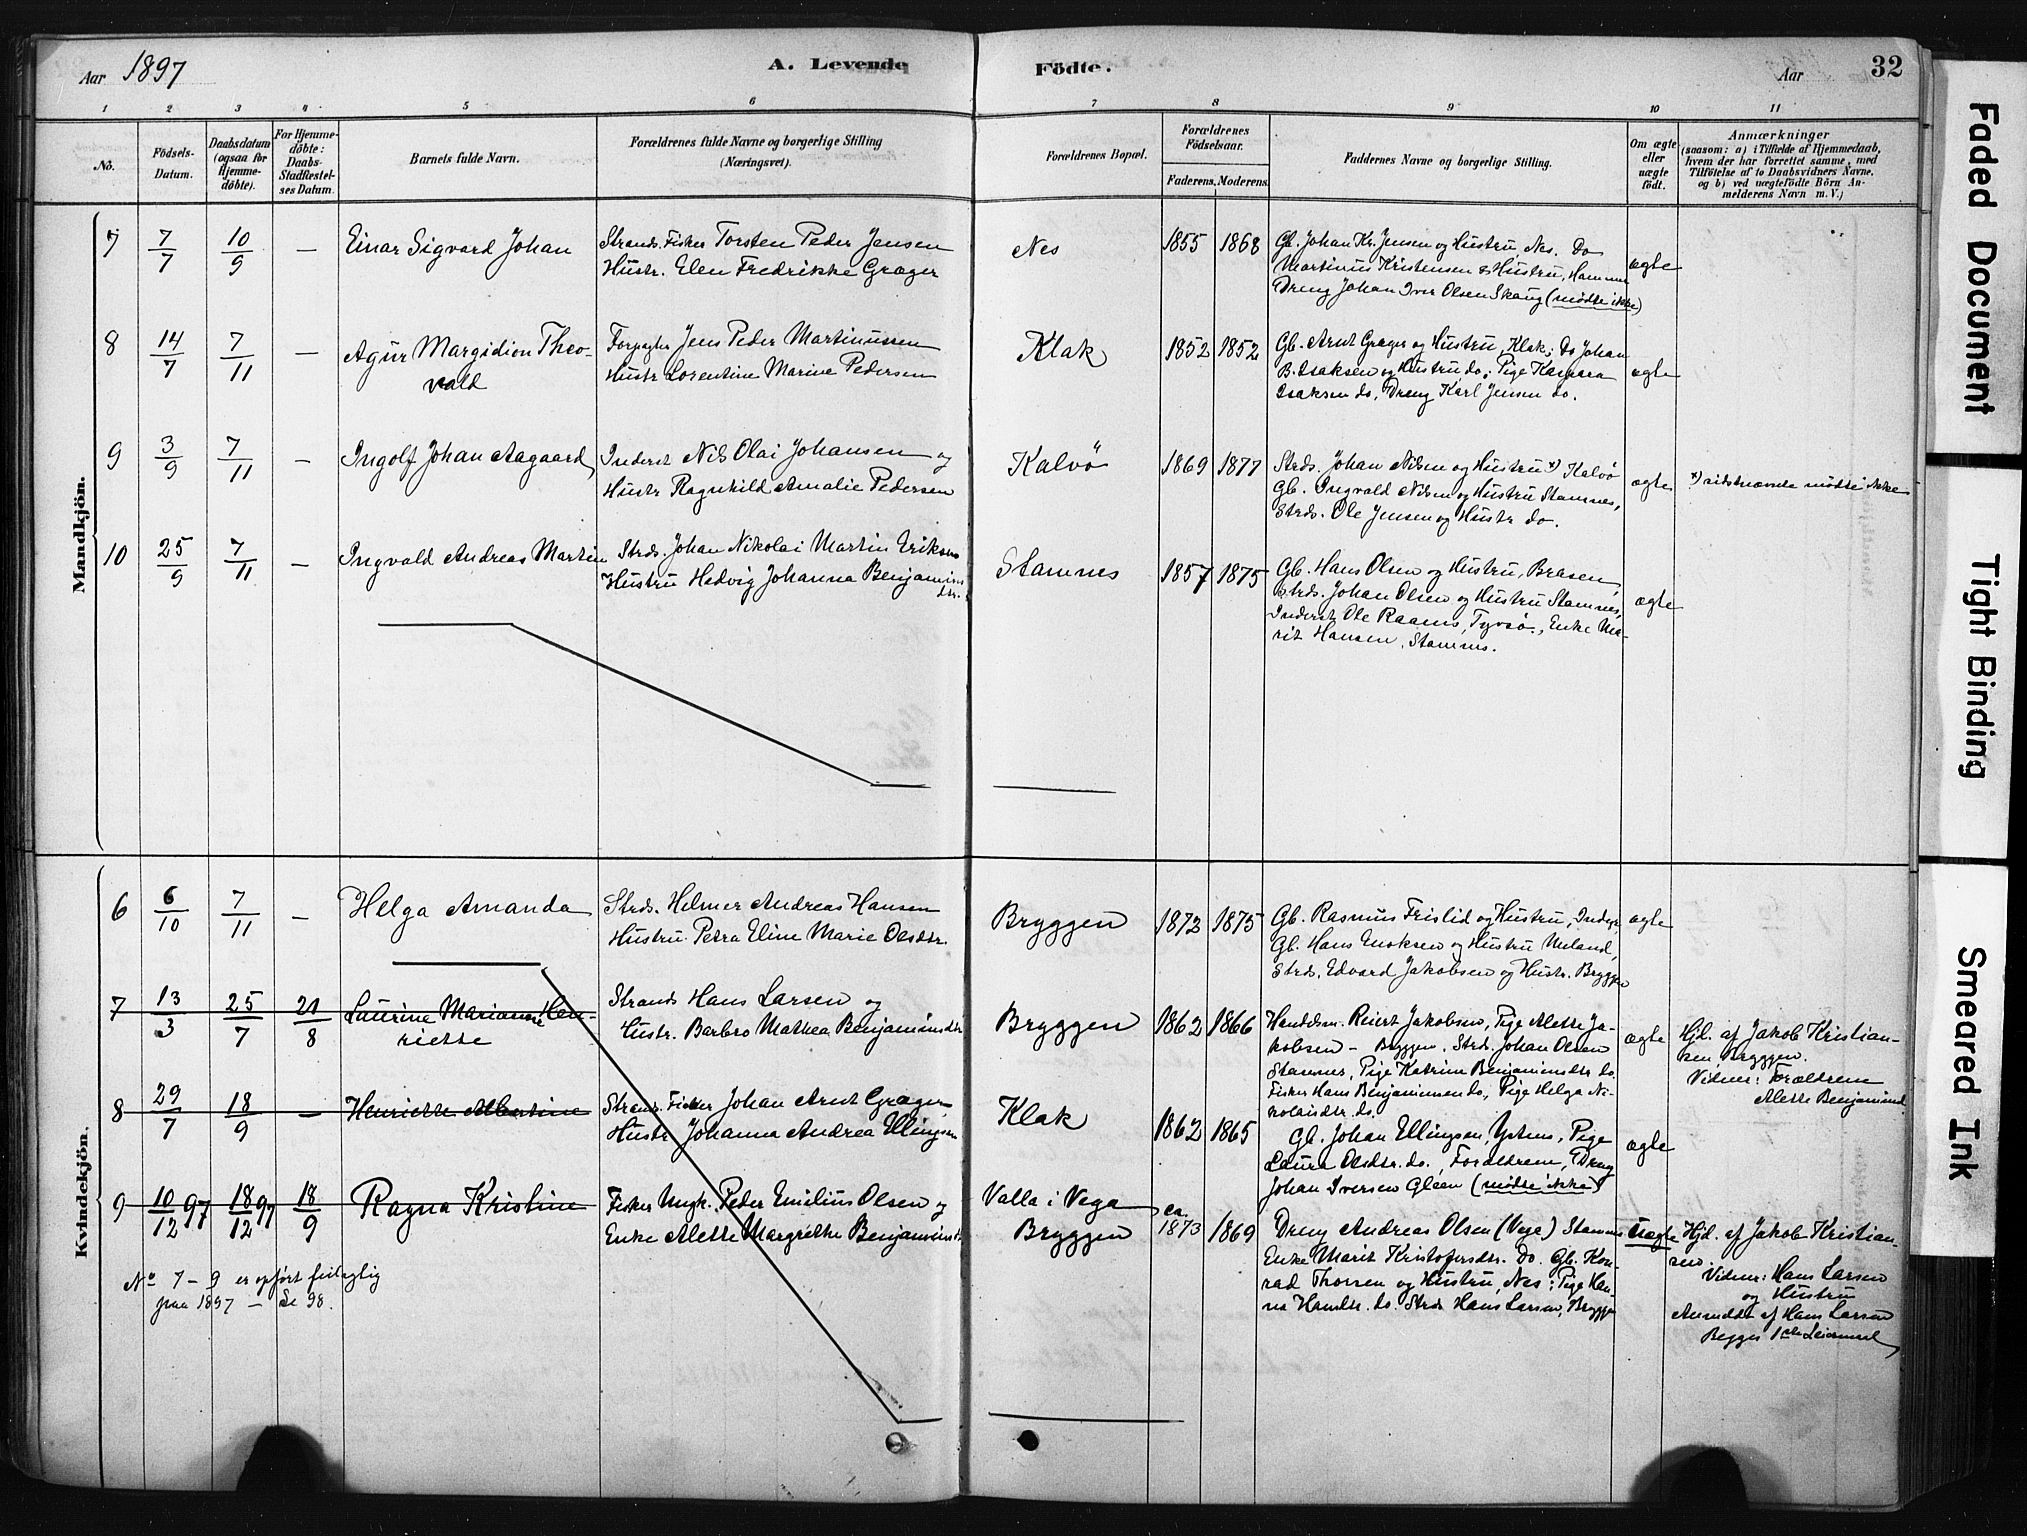 Aar 1897
A. Levende Födte.
Aar 32
1 2 3 4 5 6 7 8 9 10 11
No.
Födsels-
Datum.
Daabsdatum
(ogsaa for
Hjemme-
döbte).
For Hjemme-
döbte:
Daabs-
Stadfæstel-
ses Datum.
Barnets fulde Navn.
Forældrenes fulde Navne og borgerlige Stilling
(Næringsvei).
Forældrenes Bopæl.
Forældrenes
Födselsaar.
Faderens. Moderens.
Faddernes Navne og borgerlige Stilling.
Om ægte
eller
uægte
födt.
Anmærkninger
(saasom: a) i Tilfælde af Hjemmedaab,
hvem der har forrettet samme, med
Tilföielse af to Daabsvidners Navne,
og b) ved uægtefödte Börn An-
melderens Navn m. V.)
Mandkjön.
7 7/7 10/9 — Einar Sigvard Johan
Strands. Fisker Torsten Peder Jensen
Hustr. Elen Fredrikke Græger
Nes
1855 1868
Gb. Johan Kr. Jensen og Hustru, Nes. Do
Martinus Kristensen & Hustru, Hamnø
Dreng Johan Iver Olsen Skaug (mødte ikke)
ægte
8 14/7 7/11 — Agur Margidion Theo-
vald
Forpagter Jens Peder Martinussen
Hustr Lorentine Marine Pedersen
Klak
1852 1852
Gb. Arnt Græger og Hustru, Klak; Do Johan
B. Isaksen og Hustru do; Pige Kaspara
Isaksen do, Dreng Karl Jensen do.
ægte
9 3/9 7/11 — Ingolf Johan Aagaard
Inderst Nils Olai Johansen og
Hustr Ragnhild Amalie Pedersen
Kalvö
1869 1877
Strds. Johan Nilsen og Hustru *) Kalvö
Gb. Ingvald Nilsen og Hustru Stamnes,
Strds. Ole Jensen og Hustr do.
ægte
*) sidstnævnte mødte ikke
10 25/9 7/11 — Ingvald Andreas Martin
Strds. Johan Nikolai Martin Eriksen
Hustru Hedvig Johanna Benjamins
dtr.
Stamnes
1857 1875
Gb. Hans Olsen og Hustru, Brasen,
Strds. Johan Olsen og Hustru Stamnes,
Inderst Ole Raanes, Tyvsø, Enke Ma-
rit Hansen, Stamnes.
ægte
Kvindekjön.
6 6/10 7/11 — Helga Amanda
Strds. Helmer Andreas Hansen
Hustru Petra Eline Marie Olsdtr.
Bryggen
1872 1875
Gb. Rasmus Frislid og Hustru, Indyr,
Gb. Hans Enoksen og Hustru Meland,
Strds. Edvard Jakobsen og Hustr. Bryggen
ægte
7 13/3 25/7 21/8 Laurine Marianne Hen-
riette
Strands Hans Larsen og
Hustr. Barbro Mathea Benjaminsdtr
Bryggen
1862 1866
Handelsm. Reiert Jakobsen, Pige Alette Ja-
kobsen - Bryggen. Strd. Johan Olsen
Stamnes, Pige Katrine Benjaminsdtr do.
Fisker Hans Benjaminsen do, Pige Helga Ni-
kolaisdtr. do.
ægte
Hjd. af Jakob Kristian-
sen Bryggen.
Vidner: Forældrene
Alette Benjaminsd.
8 29/7 18/9 — Henriette Albertine
Strands. Fisker Johan Arnt Græger
Hustr Johanna Andrea Ellingsen
Klak
1862 1865
Gb. Johan Ellingsen, Ystnes, Pige
Laura Olsdtr. do., Forældrene, Dreng
Johan Iversen Gleen (mødte ikke)
ægte
9 10/12 97 18/12 97 18/9 Ragna Kristine
Fisker Ungk. Peder Emilius Olsen og
Enke Alette Margrethe Benjaminsdtr
Valla i Vega
Bryggen
ca.
1873 1869
Dreng Andreas Olsen (Vege) Stamnes
Enke Marit Kristofersdtr. Do. Gb. Kon-
rad Thorsen og Hustru, Nes; Pige Han-
na Hansdtr. do. Strds Hans Larsen, Bryggen
uægte
Hjd. af Jakob Kristian-
sen.
Vidner: Hans Larsen
og Hustru
Anmeldt af Hans Larsen
Begges 1ste Leiermaal
No 7 - 9 er opført feilagtig
paa 1897 - Se 98.
Faded Document
Tight Binding
Smeared Ink